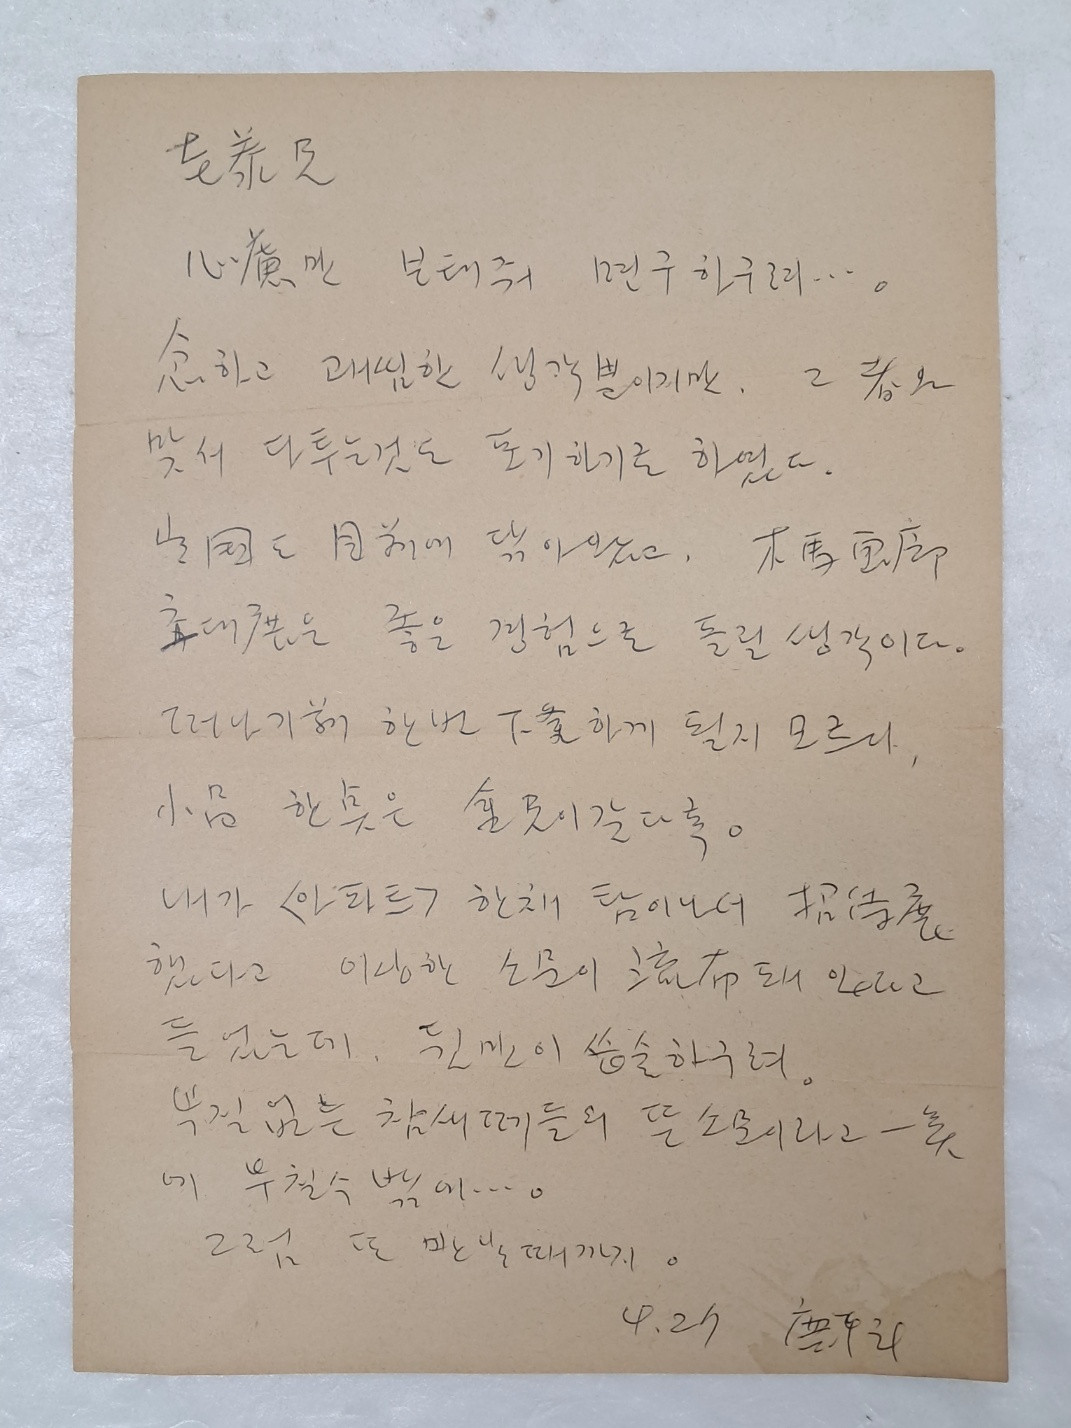 兄
心慮만 보태줘 면구하구려…。
念하고 괘씸한 생각뿐이지만, 그 者와
맞서 다투는것도 포기하기로 하였다.
出国도 目前에 닦아왔고, 木馬画廊
초대展은 좋은 경험으로 돌릴 생각이다。
떠나기前에 한번 下釜하게 될지 모르나,
小品 한 은 金兄이
내가 <아파트> 한채 탐이나서 招待展
했다고 이상한 소문이 流布돼 있다고
들었는데, 뒷맛이 씁슬하구려。
부질없는 참새떼들의 뜬소문이라고 一笑
에 부칠수 밖에…。
그럼 또 만날때까지。
4.27